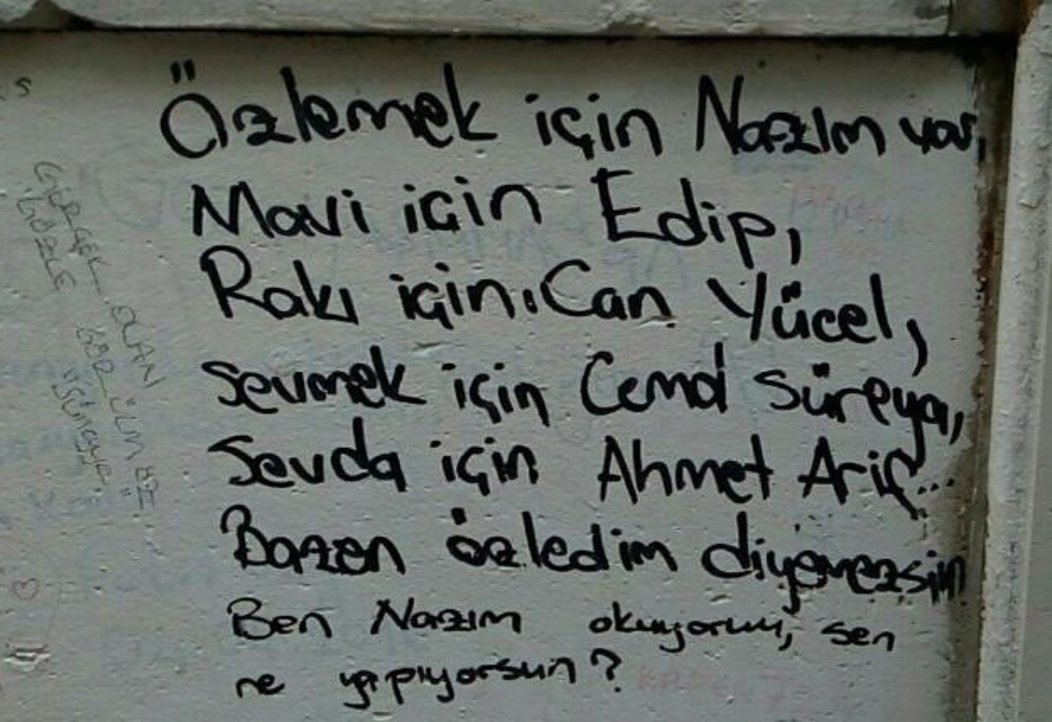 Özlemek için Nazım var,
Mavi için Edip,
Rakı için Can Yücel,
Sevmek için Cemal Süreya,
Sevda için Ahmet Arif...
Bazen özledim diyemezsin
Ben Nazım okuyorum, sen
ne yapıyorsun?
GERÇEK OLAN
GÖZLE GÖRÜLMEZ